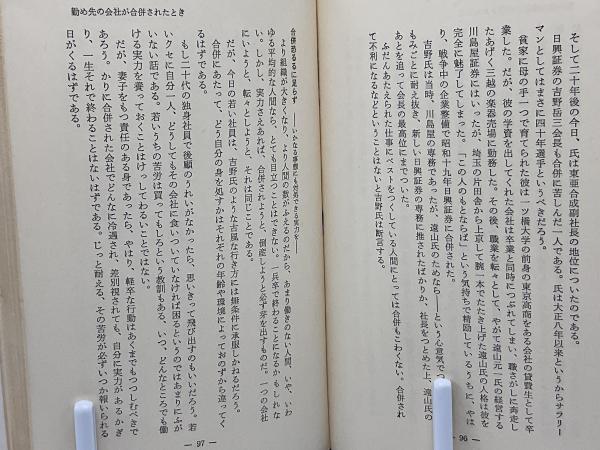 そして二十年後の今日、氏は東亜合成副社長の地位についたのである。
日興証券の吉野岳三会長も合併に苦しんだ一人である。氏は大正八年以来というからサラリー
マンとしてはまさに四十年選手というべきだろう。
貧家に母の手一つで育てられた彼は一ツ橋大学の前身の東京高商をある会社の貸費生として卒
業した。だが、彼の学資を出してくれた会社は卒業と同時につぶれてしまい、職さがしに奔走し
たあげく三越の楽器売場に勤務した。その後、職業を転々として、やがて遠山元一氏の経営する
川島屋証券にはいったが、埼玉の片田舎から上京して腕一本でたたき上げた遠山氏の人格は彼を
完全に魅了してしまった。“この人のもとならば”という気持ちで精励しているうちに、やは
り、戦争中の企業整備で昭和十九年日興証券に合併された。
吉野氏は当時、川島屋の専務であったが、遠山氏のためなら――という心意気でつ
もみごとに耐え抜き、新しい日興証券の専務に推されたばかりか、社長をつとめた上、遠山氏の
あとを追って会長の最高位にまでついた。
ふだんあたえられた仕事にベストをつくしている人間にとっては合併もこわくない。合併され
て不利になるなどということはないと吉野氏は断言する。
― 96 ―
勤め先の会社が合併されたとき
合併恐るるに足らず ――いかなる事態にも対処できる実力を――
より組織が大きくなり、より人間の数がふえるのだから、あまり働きのない人間、いや、いわ
ゆる平均的な人間なら、とても目立つことはできない。一兵卒で終わることになるかもしれな
い。しかし、実力さえあれば、合併されようと、倒産しようと必ず芽を出すものだ。一つの会社
にいようと、転々としようと、それは同じことである。
だが、今日の若い社員は、吉野氏のような古風な行き方には無条件に承服しかねるだろう。
合併にあたって、どう自分の身を処すかはそれぞれの年齢や環境によっておのずから違ってく
るはずである。
もし二十代の独身社員で後顧のうれいがなかったら、思いきって飛び出すのもいいだろう。若
いクセに自分一人、どうしてもその会社に食いついていなければ困るというのではあまりにふが
いない話である。若いうちの苦労は買ってもしろという教訓もある。いつ、どんなところでも働
ける実力を養っておくことはけっしてわるいことではない。
だが、妻子をもつ責任のある身であったら、やはり、軽卒な行動はあくまでもつつしむべきで
あろう。かりに合併された会社でどんなに冷遇され、差別視されても、自分に実力があるかぎ
り、一生それで終わることはないはずである。じっと耐える、その苦労が必ずいつか報いられる
日がくるはずである。
― 97 ―